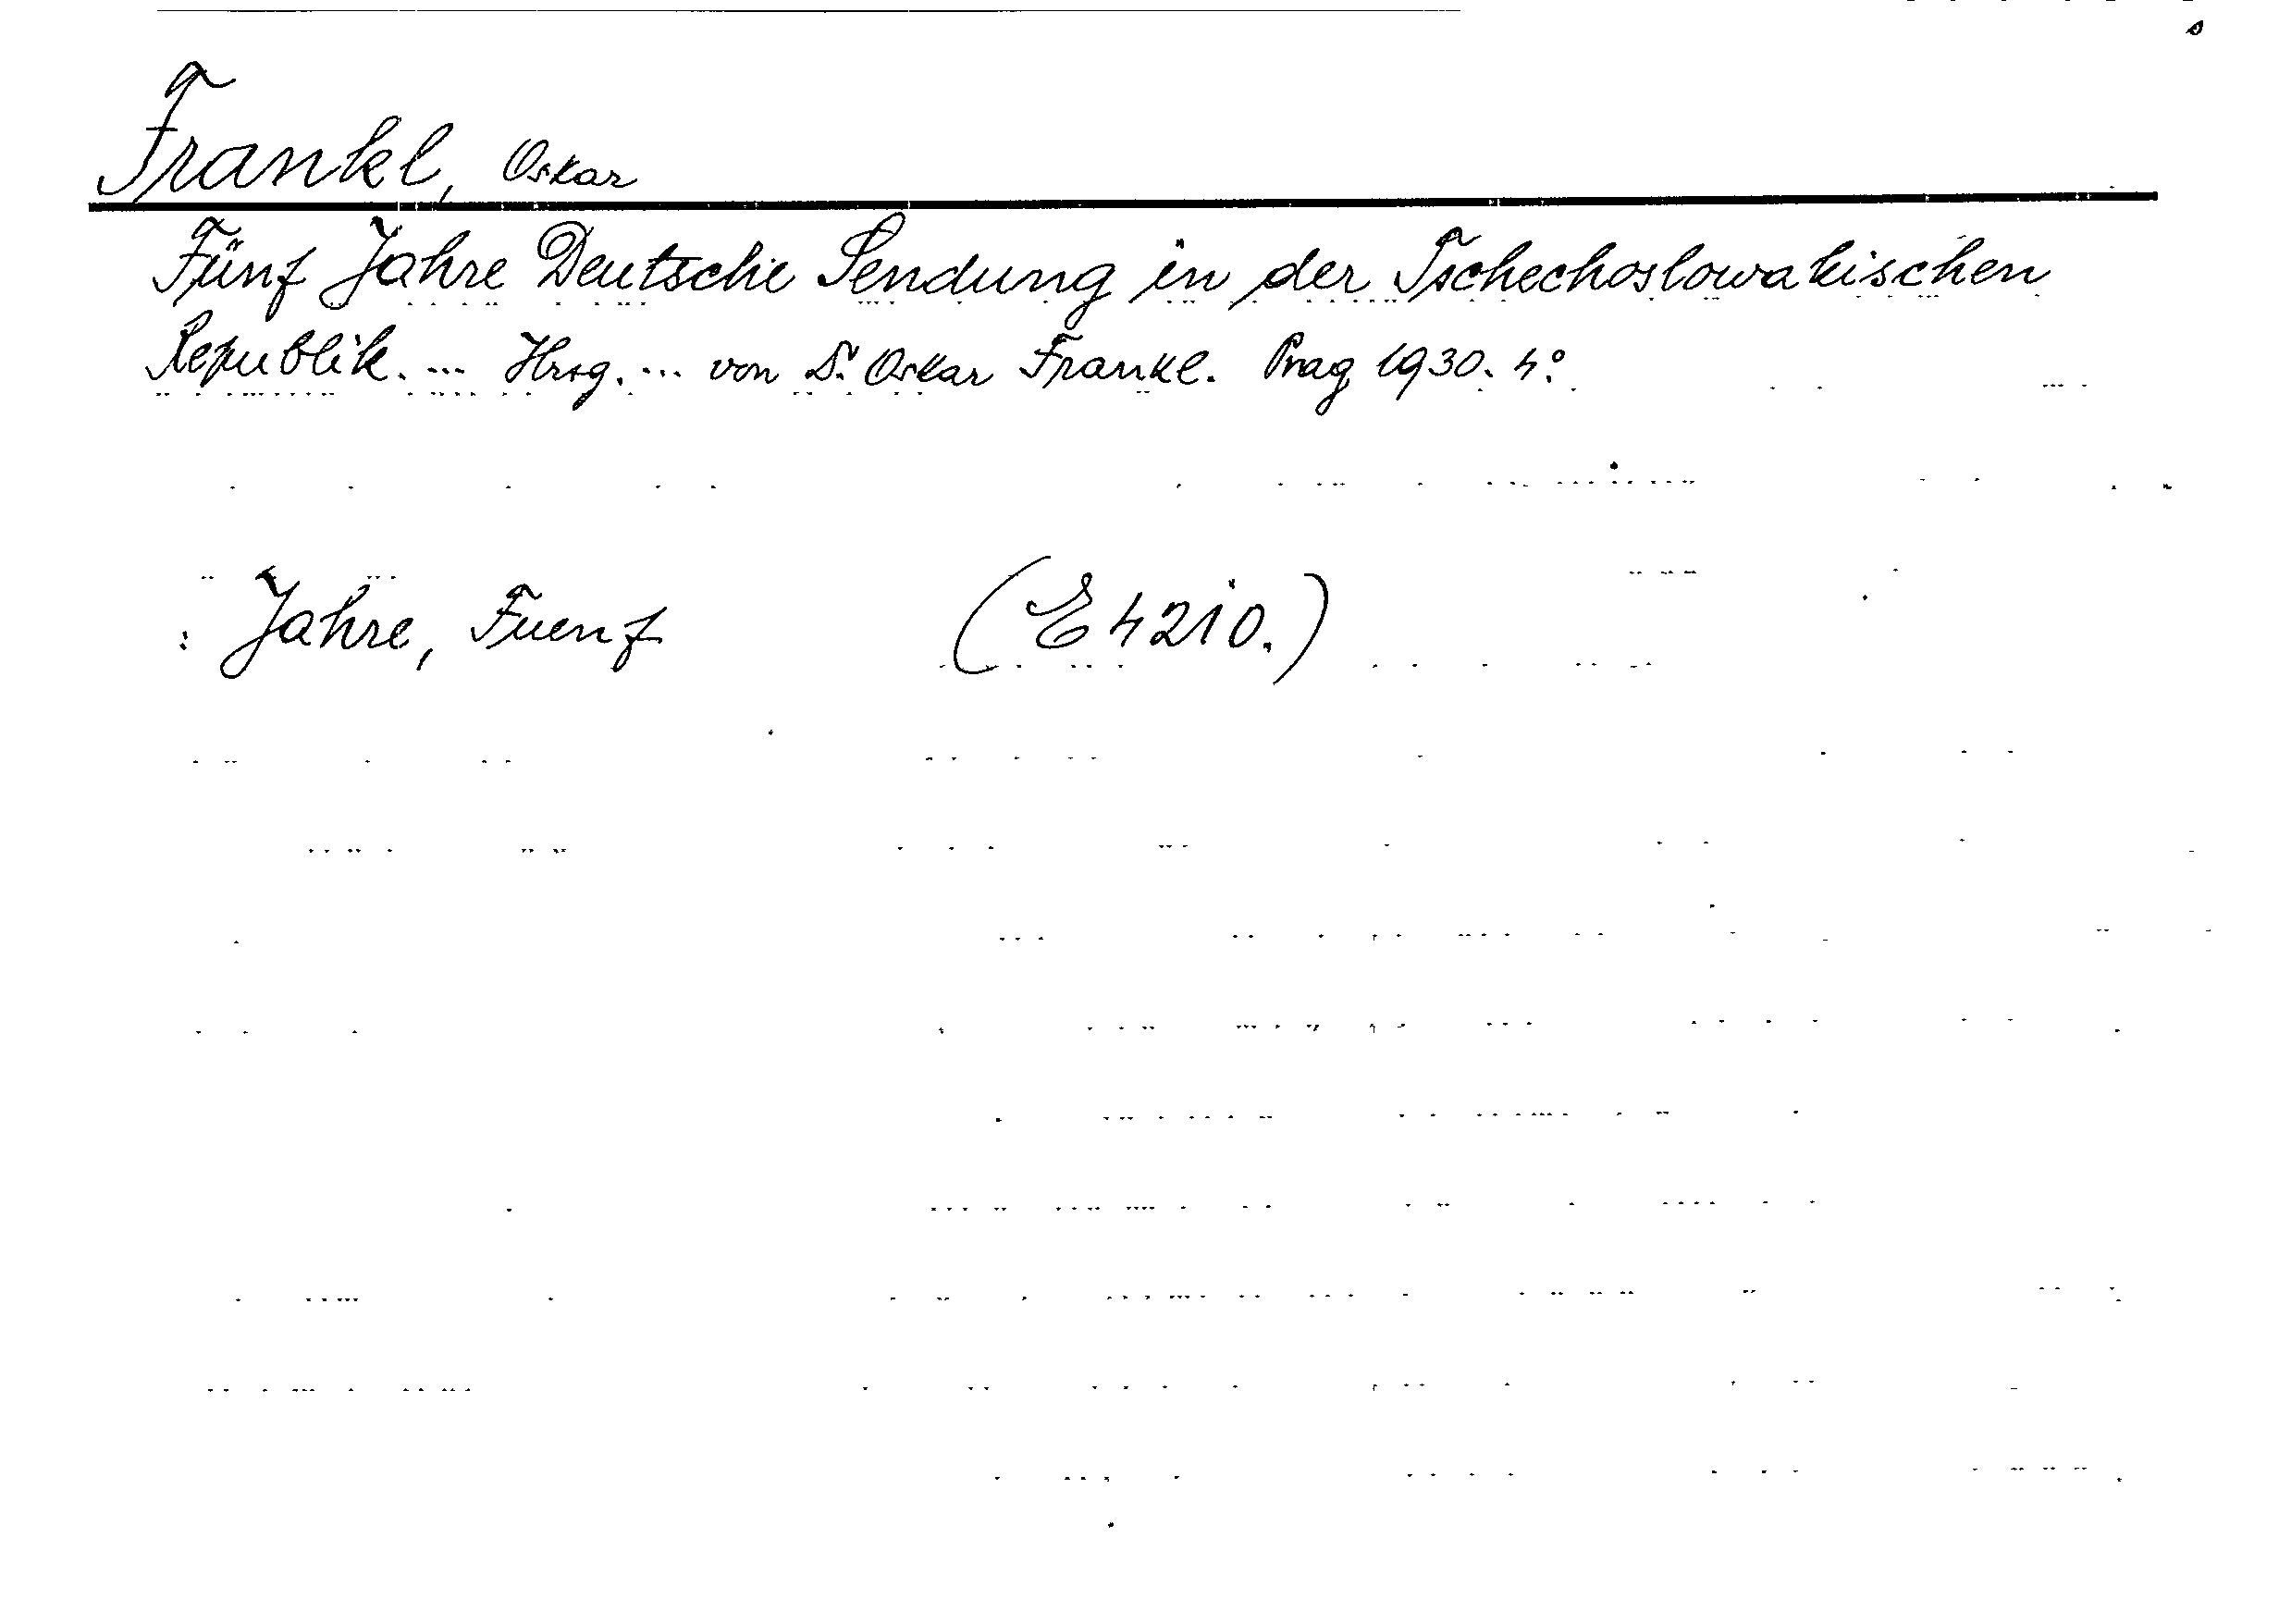 Frankl, Oskar
Fünf Jahre Deutsche Sendung in der Tschechoslowakischen
Republik. ... Hrsg. ... von Dr. Oskar Frankl. Prag 1930. 4°.
: Jahre, Fuenf (E 4210.)